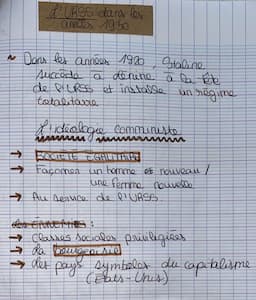 L'URSS dans les
années 1930
~ Dans les années 1920, Staline
succède à Lénine à la tête
de l'URSS et installe un régime
totalitaire
L'idéologie communiste
→ SOCIÉTÉ ÉGALITAIRE
→ Façonner un homme et nouveau /
une femme nouvelle
→ Au service de l'URSS.
Les ENNEMIES :
→ Classes sociales privilégiées
→ La bourgeoisie
→ des pays symboles du capitalisme
(États-Unis)